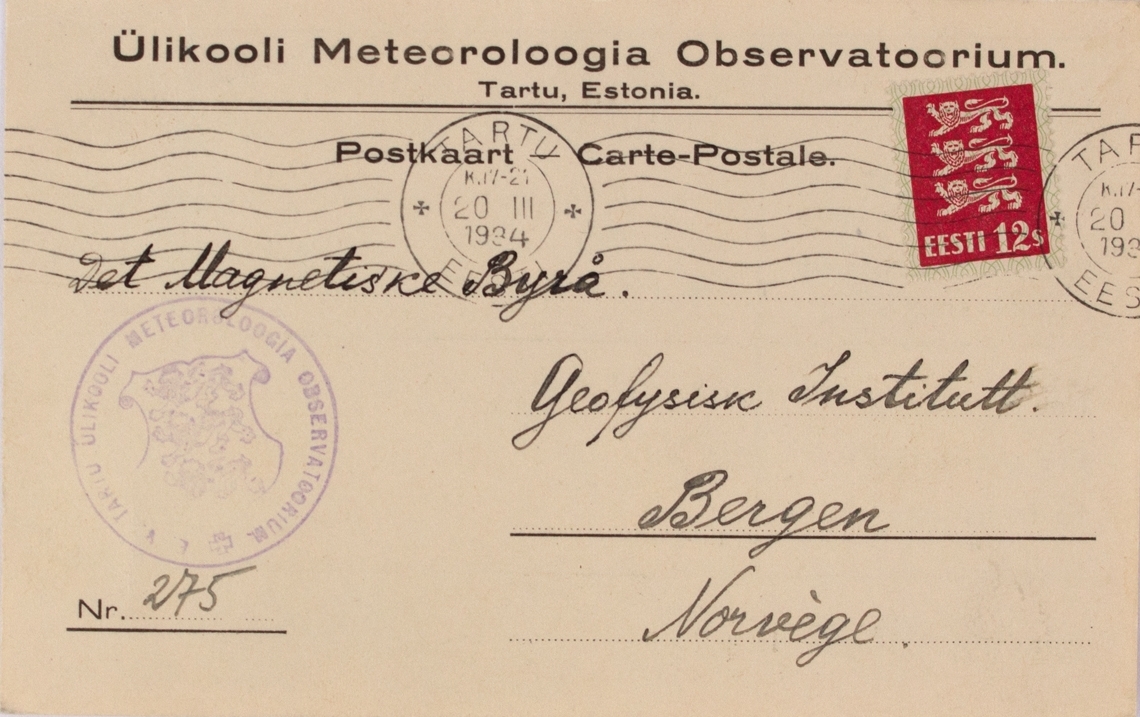 Ülikooli Meteoroloogia Observatoorium.
Tartu, Estonia.
Postkaart Carte-Postale.
TARTU
K.17-21
20 III
1934
EESTI
EESTI 12s
TAR
K.17-
20
193
EES
Det Magnetiske Byrå.
TARTU ÜLIKOOLI METEOROLOOGIA OBSERVATOORIUM. E V
Geofysisk Institutt.
Bergen
Norvège.
Nr. 275